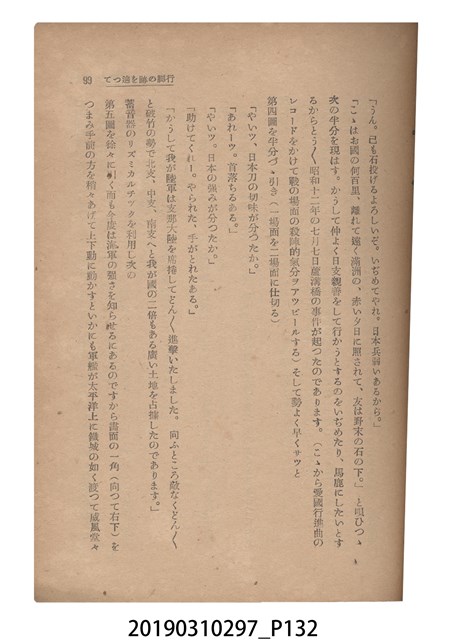 行脚の跡を追つて　99
「うん。己も石投げるよろしいぞ、いぢめてやれ。日本兵弱いあるから。」
「こゝはお國の何百里、離れて遠く滿洲の、赤い夕日に照されて、友は野末の石の下。」と唄ひつゝ
次の半分を現はす。かうして仲よく日支親善をして行かうとするのをいぢめたり、馬鹿にしたいとす
るからとう〱昭和十二年の七月七日盧溝橋の事件が起つたのであります。（こゝから愛國行進曲の
レコードをかけて戰の場面の殺陣的氣分ヲアツピールする）そして勢よく早くサツと
第四圖を半分づゝ引き（一場面を二場面に仕切る）
「やいツ、日本刀の切味が分つたか。」
「あれーツ。首落ちるある。」
「やいツ。日本の强みが分つたか。」
「助けてくれー。やられた、手がとれたある。」
「かうして我が陸軍は支那大陸を席捲してどん〱進擊いたしました。向ふところ敵なくどん〱
と破竹の勢で北支、中支、南支へと我が國の二倍もある廣い土地を占據したのであります。」
蓄音器のリズミカルチツクを利用し次の
第五圖を徐々に引く而も今度は海軍の强さを知らせるにあるのですから畫面の一角（向つて右下）を
つまみ手前の方を稍々あげて上下動に動かすといかにも軍艦が太平洋上に鐵城の如く渡つて威風堂々
20190310297_P132